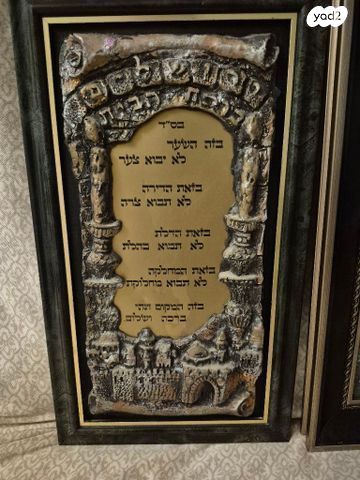 yad2
ירושלים
ברכת הבית
בס"ד
בזה השער
לא יבוא צער
בזאת הדירה
לא תבוא צרה
בזאת הדלת
לא תבוא בהלת
בזאת המחלקה
לא תבוא מחלוקת
בזה המקום יהי
ברכה ושלום